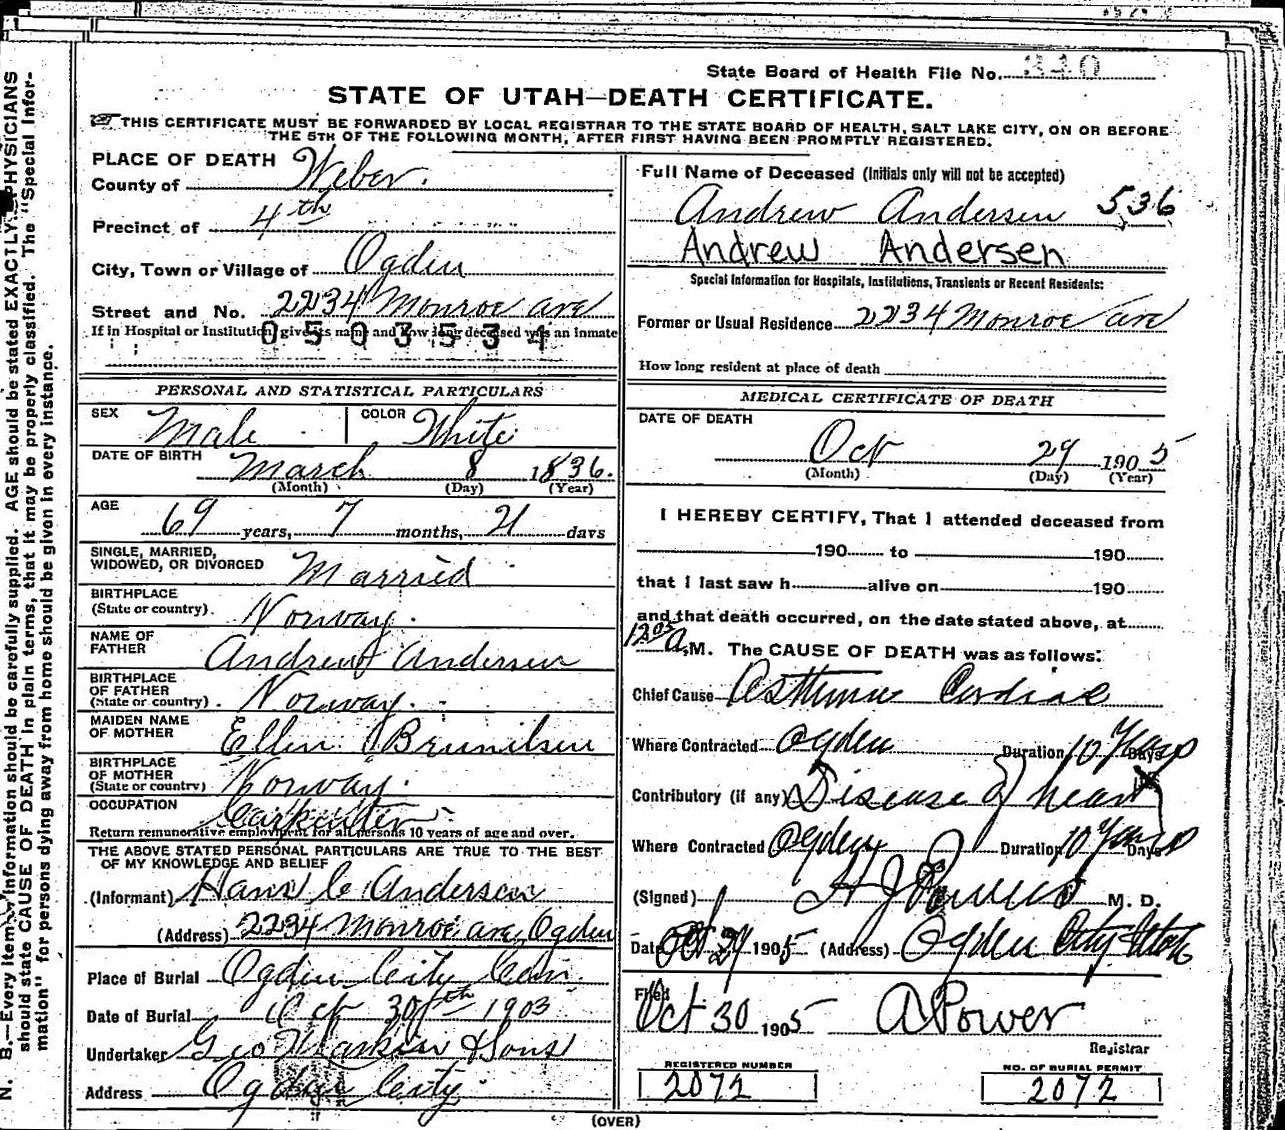 State Board of Health File No. 340
STATE OF UTAH—DEATH CERTIFICATE.
THIS CERTIFICATE MUST BE FORWARDED BY LOCAL REGISTRAR TO THE STATE BOARD OF HEALTH, SALT LAKE CITY, ON OR BEFORE
THE 5TH OF THE FOLLOWING MONTH, AFTER FIRST HAVING BEEN PROMPTLY REGISTERED.
PLACE OF DEATH
County of Weber.
Precinct of 4th
City, Town or Village of Ogden
Street and No. 2234 Monroe ave
If in Hospital or Institution, give its name and how long deceased was an inmate
0503534
PERSONAL AND STATISTICAL PARTICULARS
SEX Male COLOR White
DATE OF BIRTH March 8 1836.
(Month) (Day) (Year)
AGE 69 years, 7 months, 21 days
SINGLE, MARRIED,
WIDOWED, OR DIVORCED Married
BIRTHPLACE
(State or country). Norway.
NAME OF
FATHER Andrew Andersen
BIRTHPLACE
OF FATHER
(State or country). Norway.
MAIDEN NAME
OF MOTHER Ellen Brunilsen
BIRTHPLACE
OF MOTHER
(State or country) Norway.
OCCUPATION Carpenter
Return remunerative employment for all persons 10 years of age and over.
THE ABOVE STATED PERSONAL PARTICULARS ARE TRUE TO THE BEST
OF MY KNOWLEDGE AND BELIEF
(Informant) Hans C. Andersen
(Address) 2234 Monroe ave, Ogden
Place of Burial Ogden City Cem.
Date of Burial Oct 30th 1903
Undertaker Geo Larkin & Sons
Address Ogden City.
Full Name of Deceased (Initials only will not be accepted)
Andrew Andersen 536
Andrew Andersen
Special Information for Hospitals, Institutions, Transients or Recent Residents:
Former or Usual Residence 2234 Monroe ave
How long resident at place of death
MEDICAL CERTIFICATE OF DEATH
DATE OF DEATH
Oct 29 1905
(Month) (Day) (Year)
I HEREBY CERTIFY, That I attended deceased from
190 to 190
that I last saw h alive on 190
and that death occurred, on the date stated above, at
1205 A.M. The CAUSE OF DEATH was as follows:
Chief Cause Asthma Cardiac
Where Contracted Ogden Duration 10 Years Days
Contributory (if any) Disease of heart
Where Contracted Ogden Duration 10 Years Days
(Signed) H J Powers M. D.
Date Oct 29 1905 (Address) Ogden City Utah
Filed
Oct 30 1905 A Power
Registrar
REGISTERED NUMBER
2072
NO. OF BURIAL PERMIT
2072
(OVER)
N. B.—Every item of information should be carefully supplied. AGE should be stated EXACTLY. PHYSICIANS
should state CAUSE OF DEATH in plain terms, that it may be properly classified. The "Special Infor-
mation" for persons dying away from home should be given in every instance.